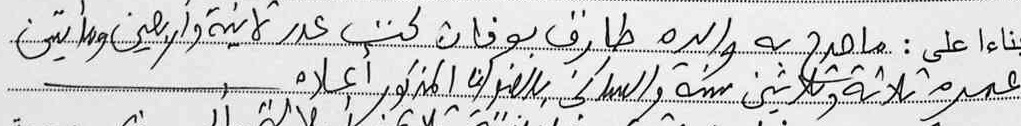 بناءا على : ما صرح به والده طارق بوفان تحت عدد ثمانية وأربعين ومأتين
عمره ثلاثة وثلاثين سنة والساكن بالعنوان المذكور أعلاه